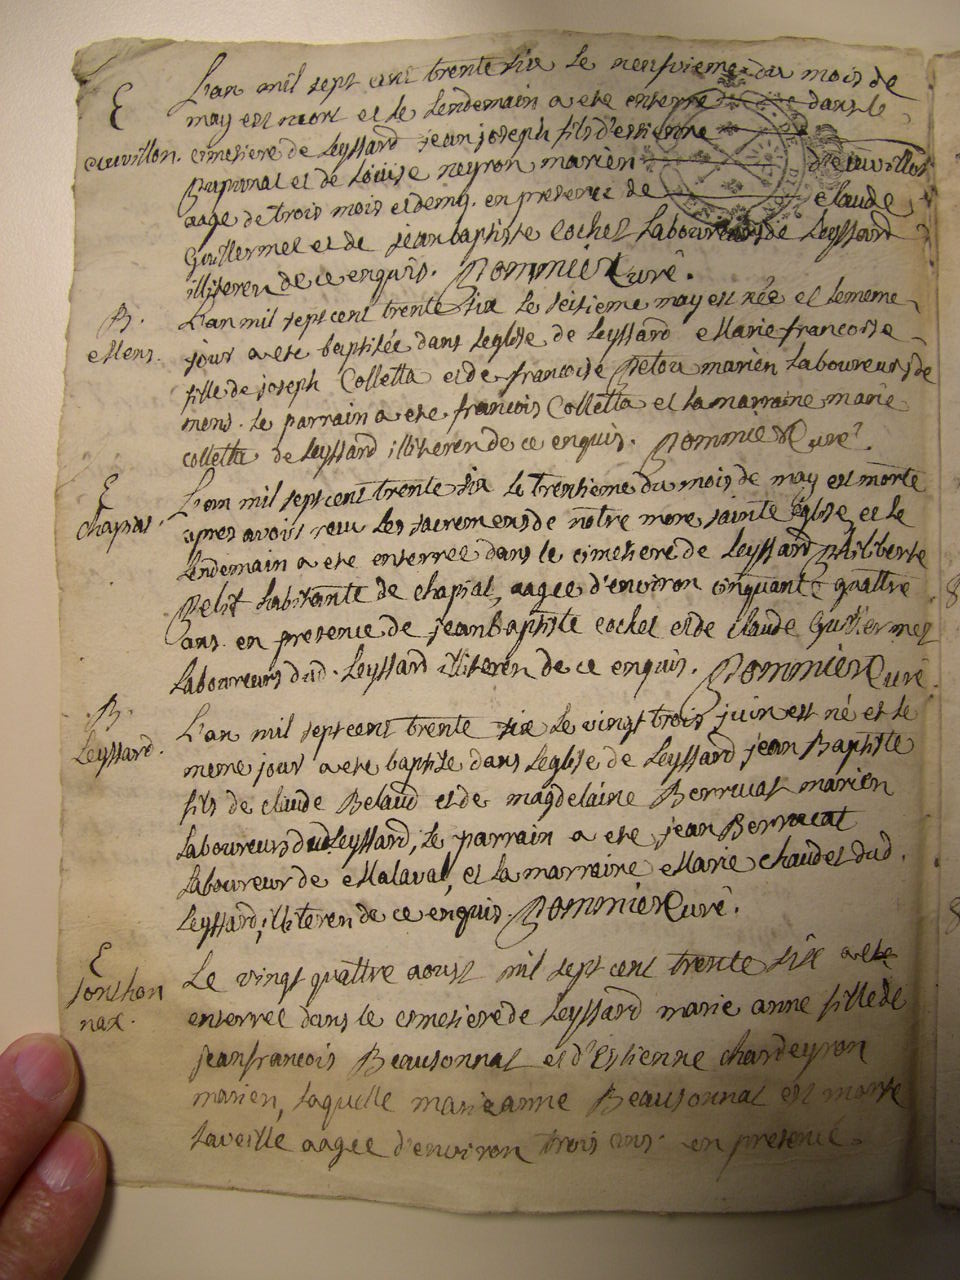 L'an mil sept cent trente six le neufvieme du mois de
E
may est mort et le lendemain a ete enterré dans le
cuvillon. cimetiere de Leyssard jean joseph fils d'estienne
et de Louise neyron mariés d'
aagé de trois mois et demy. en presence de claude
Guillermet et de jean baptiste cochet Laboureurs de Leyssard
illiteren de ce enquis. Pommier Curé.
B.
L'an mil sept cent trente six le seisieme may est née et le meme
eMens.
jour a ete baptisée dans leglise de Leyssard Marie francoise
fille de joseph Colletta et de francoise mariés Laboureurs de
mens. le parrain a ete francois Colletta et la marraine marie
colletta de Leyssard illiteren de ce enquis. Pommier Curé.
E
L'an mil sept cent trente six le trentieme du mois de may est morte
chapiat.
apres avoir receu les sacremens de notre mere sainte Eglise, et le
lendemain a ete enterrée dans le cimetiere de Leyssard philiberte
Petit habitante de chapiat, aagée d'environ cinquante quattre
ans. en presence de jean baptiste cochet et de claude Guillermet
Laboureurs dud. Leyssard illiteren de ce enquis. Pommier Curé.
B.
L'an mil sept cent trente six le vingt trois juin est né et le
Leyssard.
meme jour a ete baptisé dans leglise de Leyssard jean Baptiste
fils de claude Belaud et de magdelaine Berrucat mariés
Laboureurs dud Leyssard, le parrain a ete jean Berrucat
Laboureur de Malaval, et la marraine Marie chaudet dud.
Leyssard, illiteren de ce enquis. Pommier Curé.
E
Le vingt quattre aoust mil sept cent trente six a ete
Sonthon
nax.
enterrée dans le cimetiere de Leyssard marie anne fille de
jean francois Beausonnat et d'Estienne chardeyron
mariés, laquelle marie anne Beausonnat est morte
la veille aagée d'environ trois ans. en presence